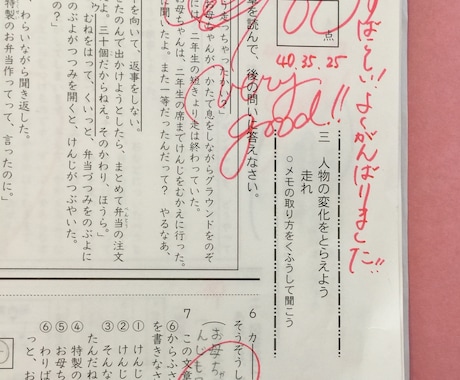 りばとい!よくがんばりました!!
00
点
40.35.25
Very good!!
三 人物の変化をとらえよう
走れ
○メモの取り方をくふうして聞こう
章を読んで、後の問いに答えなさい。
走っちゃったかい？
お母ちゃんが、かたで息をしながらグラウンドをのぞ
は、二年生の短きょり走は終わっていた。
母ちゃんは、二年生の席までけんじをむかえに行った。
は聞いたよ。また一等だったんだって？　やるなあ、
の？」
を向いて、返事をしない。
さたのんで出かけようとしたら、まとめて弁当の注文
よ。三十個だからねえ。そのかわり、ほうら。」
むねをはって、くいっと、弁当づつみをのぶよに
のぶよがつつみを開くと、けんじがつぶやいた。
わらいながら聞き返した。
特製のお弁当作ってって、言ったのに。」
6 カー
そうぞうし
（お母ち
んじもつ
7 この文章
⑥からふさ
を書きなさ
① けんじ
② けんじ
③ そんな
④ 特製の
⑤ お母ち
⑥ わりば
っと、お